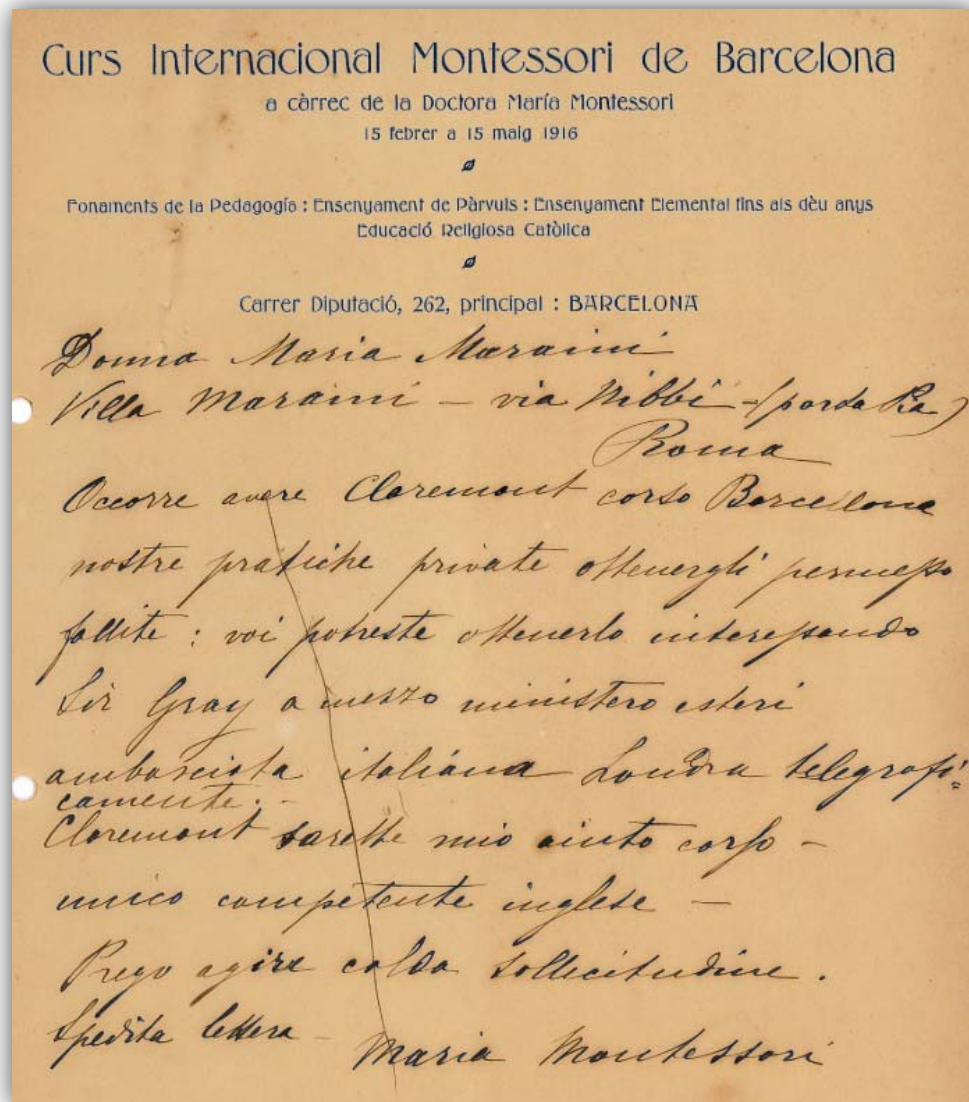 Curs Internacional Montessori de Barcelona
a càrrec de la Doctora María Montessori
15 febrer a 15 maig 1916
Fonaments de la Pedagogía : Ensenyament de Pàrvuls : Ensenyament Elemental fins als dèu anys
Educació Religiosa Catòlica
Carrer Diputació, 262, principal : BARCELONA
Donna Maria Maraini
Villa Maraini – via Nibbi – (porta Pia)
Roma
Occorre avere Claremont corso Barcellona
nostre pratiche private ottenergli permesso
fallite : voi potreste ottenerlo interessando
Sir Gray a mezzo ministero esteri
ambasciata italiana Londra telegrafi=
camente. –
Claremont sarebbe mio aiuto corso –
unico competente inglese –
Prego agire calda sollecitudine.
Spedita lettera –
Maria Montessori